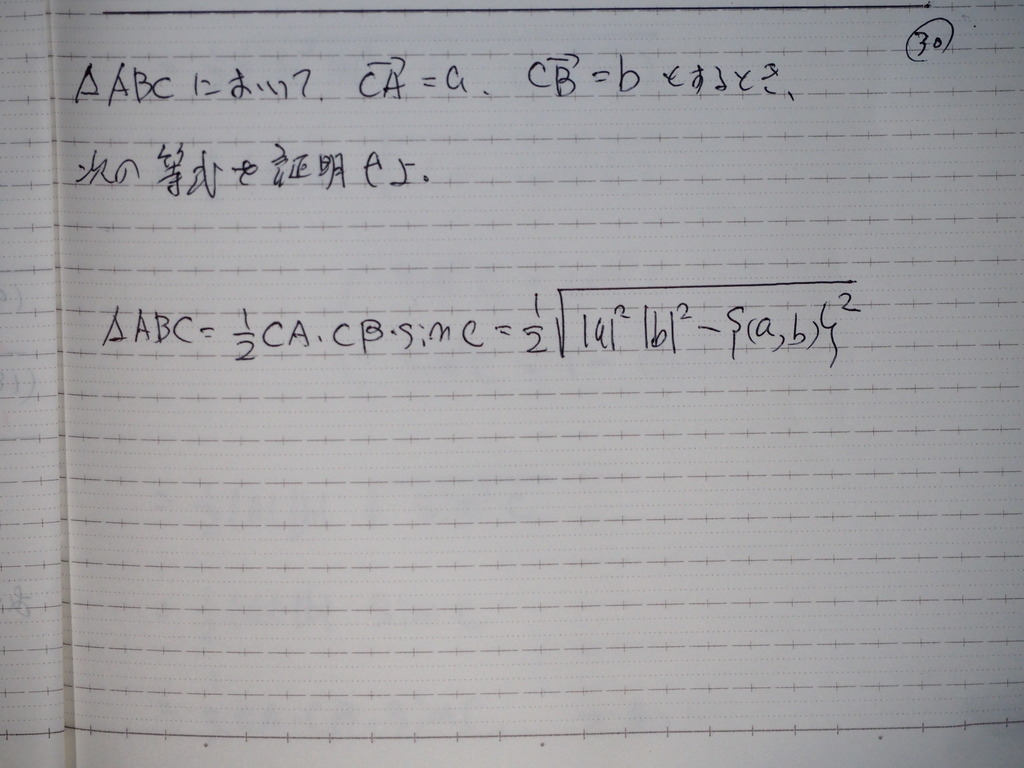 ㉚
△ABCにおいて、 $\overrightarrow{CA}$ = a、 $\overrightarrow{CB}$ = b とするとき、
次の等式を証明せよ.
△ABC = $\frac{1}{2}$ CA・CB・sin C = $\frac{1}{2}\sqrt{|a|^2 |b|^2 - \{(a,b)\}^2}$